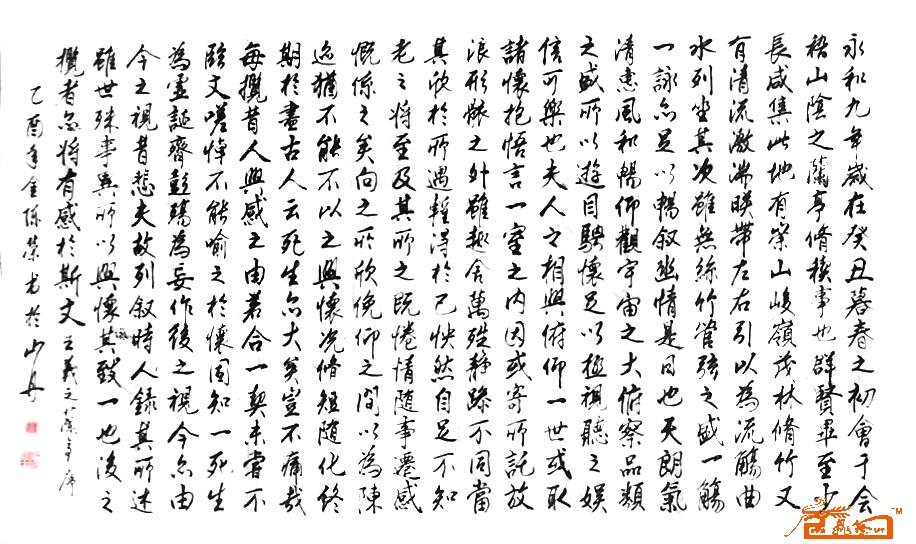 永和九年歲在癸丑暮春之初會于会
稽山陰之蘭亭脩禊事也群賢畢至少
長咸集此地有崇山峻嶺茂林脩竹又
有清流激湍暎帶左右引以為流觴曲
水列坐其次雖無絲竹管弦之盛一觴
一詠亦足以暢叙幽情是日也天朗氣
清惠風和暢仰觀宇宙之大俯察品類
之盛所以遊目騁懷足以極視聽之娛
信可樂也夫人之相與俯仰一世或取
諸懷抱悟言一室之内因或寄所託放
浪形骸之外雖趣舍萬殊静躁不同當
其欣於所遇暫得於己怏然自足不知
老之將至及其所之既惓情随事遷感
慨係之矣向之所欣俛仰之間以為陳
迹猶不能不以之興懷況脩短随化終
期於盡古人云死生亦大矣豈不痛哉
每攬昔人興感之由若合一契未嘗不
臨文嗟悼不能喻之於懷固知一死生
為虛誕齊彭殤為妄作後之視今亦由
今之視昔悲夫故列叙時人錄其所述
雖世殊事異所以興懷其致一也後之
攬者亦將有感於斯文 王羲之蘭亭序
乙酉年金於山丹